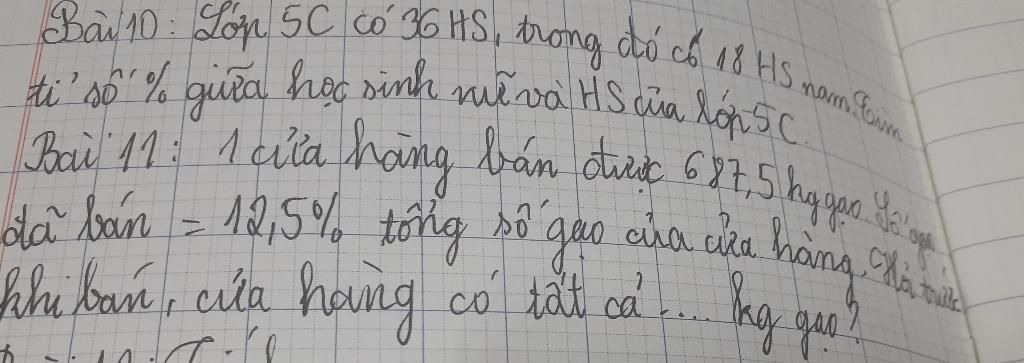 Bài 10: Lớp 5C có 36 HS, trong đó có 18 HS nam. Tìm
tỉ số % giữa học sinh nữ và HS của lớp 5C.
Bài 11: 1 cửa hàng bán được 687,5 kg gạo. Số gạo
đã bán = 12,5% tổng số gạo của cửa hàng. Hỏi trước
khi bán, cửa hàng có tất cả .... kg gạo?